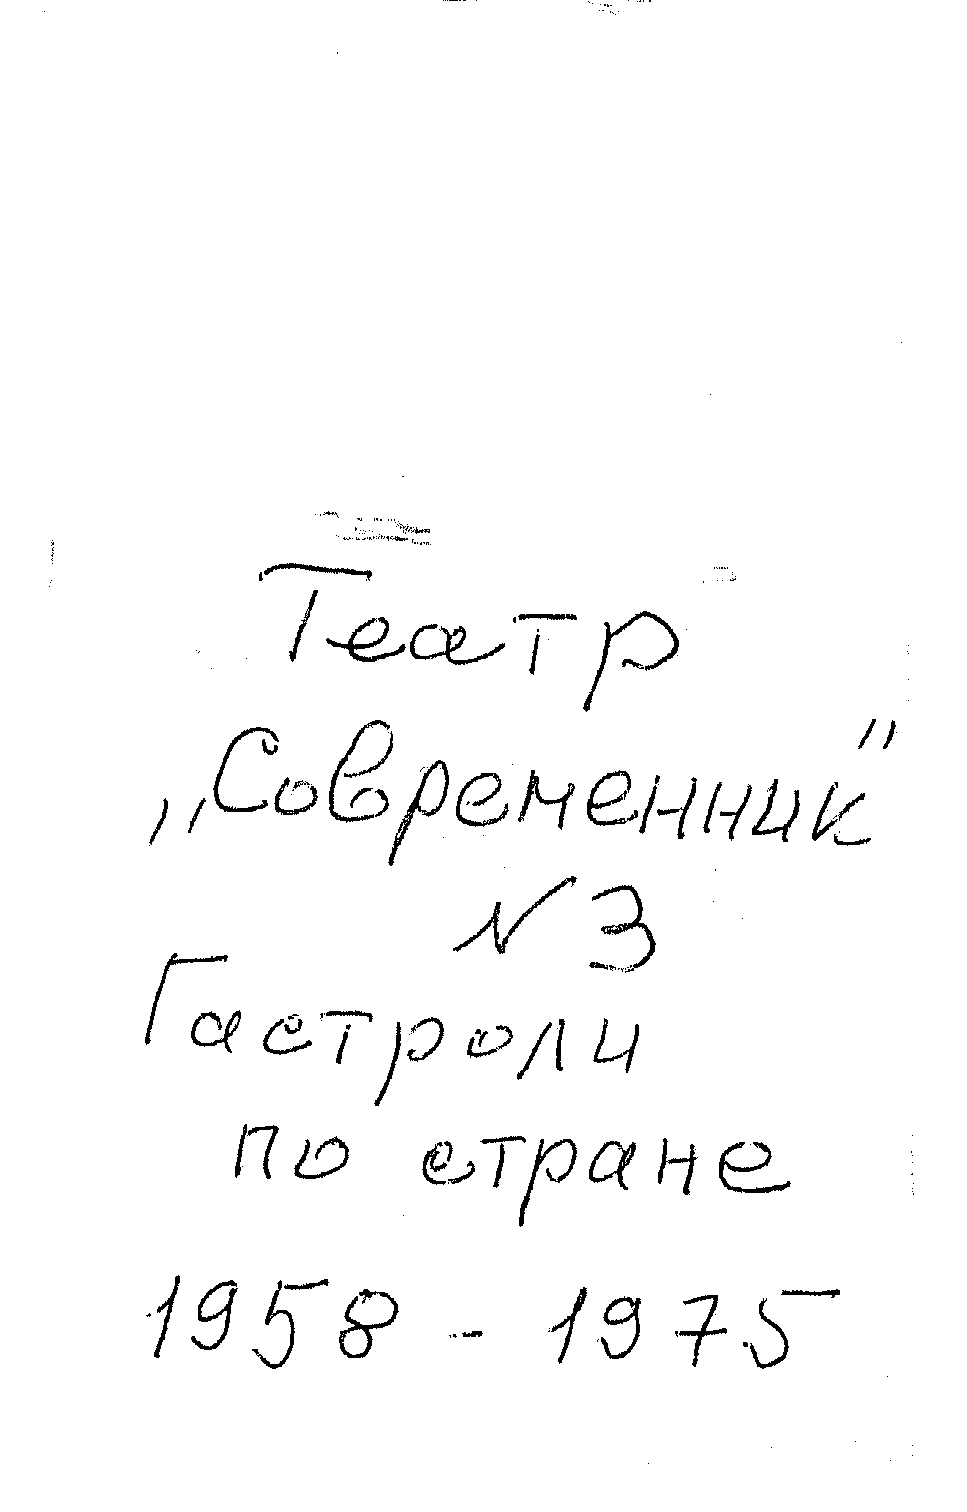 Театр
„Современник"
N 3
Гастроли
по стране
1958 - 1975